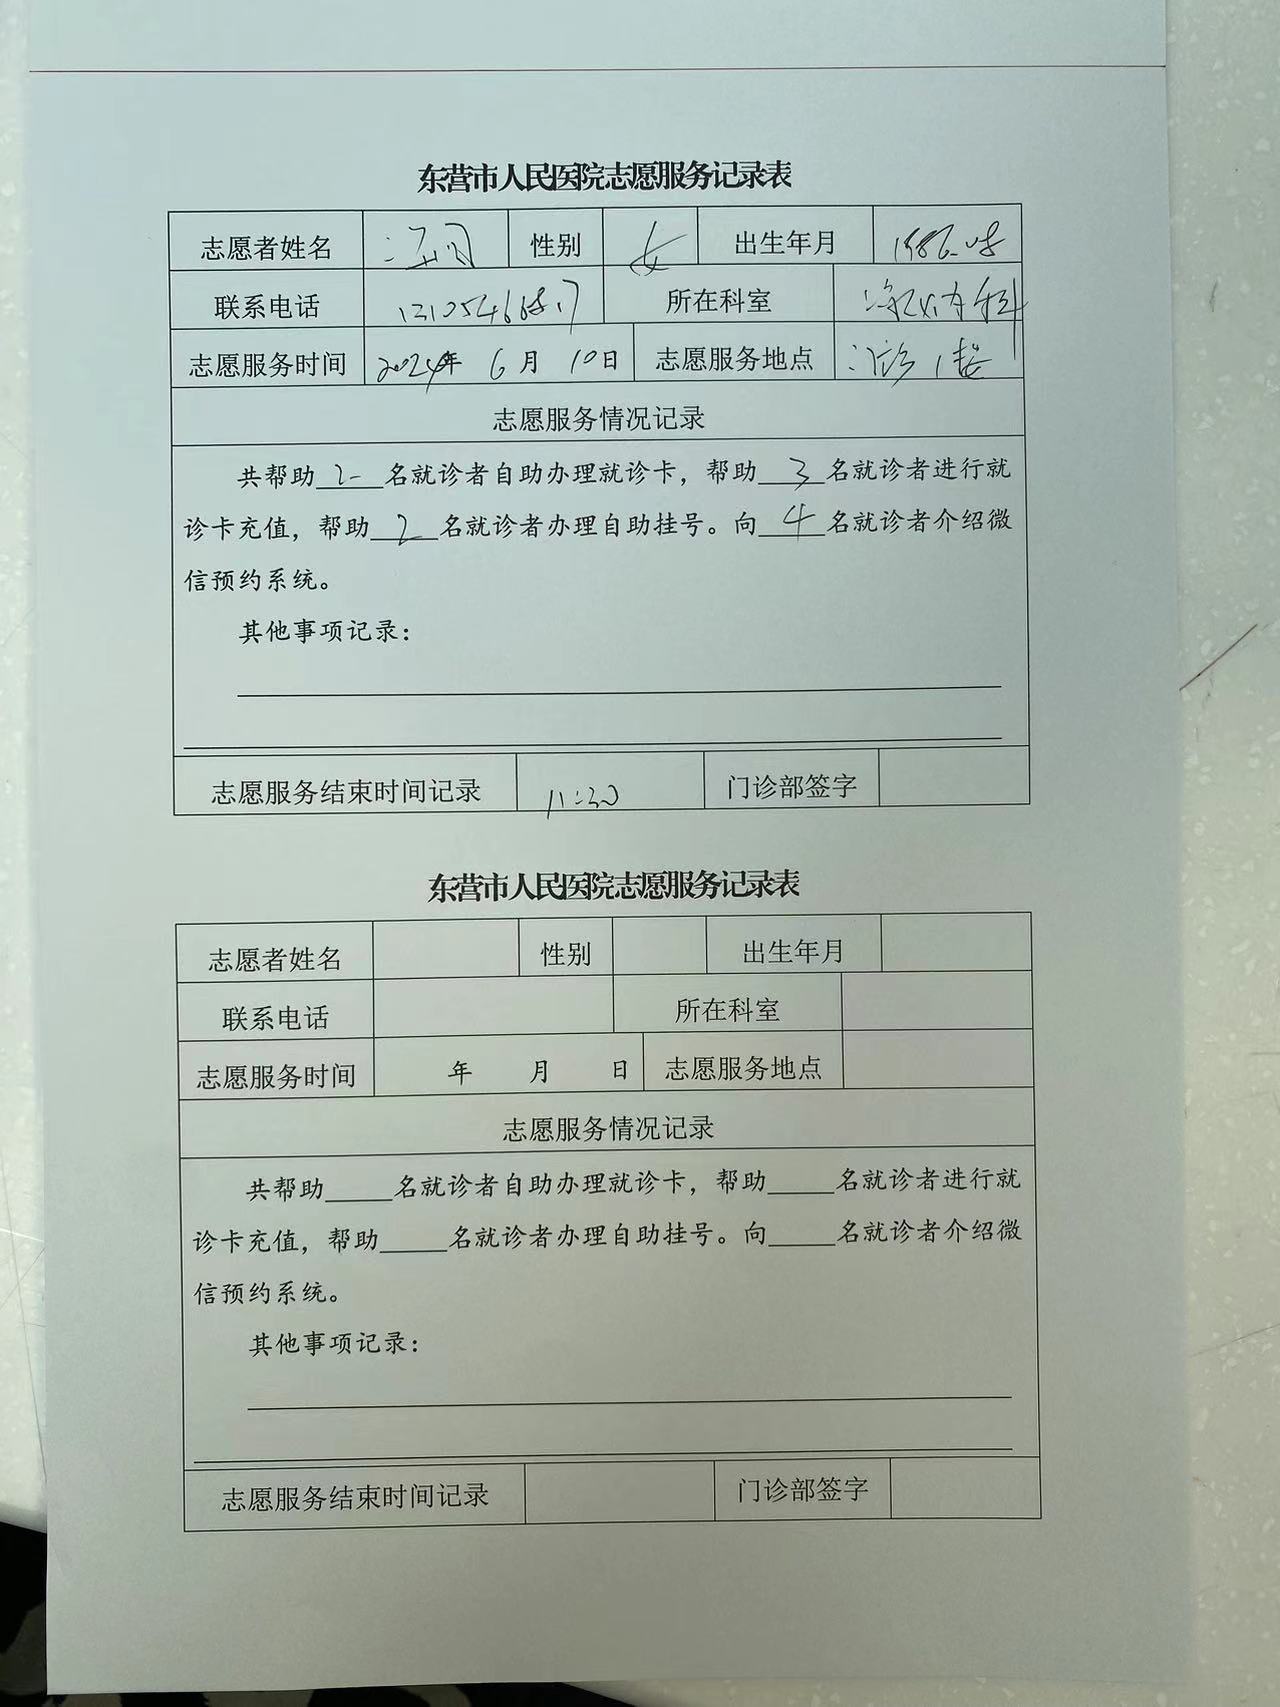 东营市人民医院志愿服务记录表
志愿者姓名 性别 女 出生年月
联系电话 所在科室
志愿服务时间 2024年 6月 10日 志愿服务地点 1楼
志愿服务情况记录
共帮助2名就诊者自助办理就诊卡，帮助3名就诊者进行就
诊卡充值，帮助2名就诊者办理自助挂号。向4名就诊者介绍微
信预约系统。
其他事项记录：
志愿服务结束时间记录 11:30 门诊部签字
东营市人民医院志愿服务记录表
志愿者姓名 性别 出生年月
联系电话 所在科室
志愿服务时间 年 月 日 志愿服务地点
志愿服务情况记录
共帮助_____名就诊者自助办理就诊卡，帮助_____名就诊者进行就
诊卡充值，帮助_____名就诊者办理自助挂号。向_____名就诊者介绍微
信预约系统。
其他事项记录：
志愿服务结束时间记录 门诊部签字